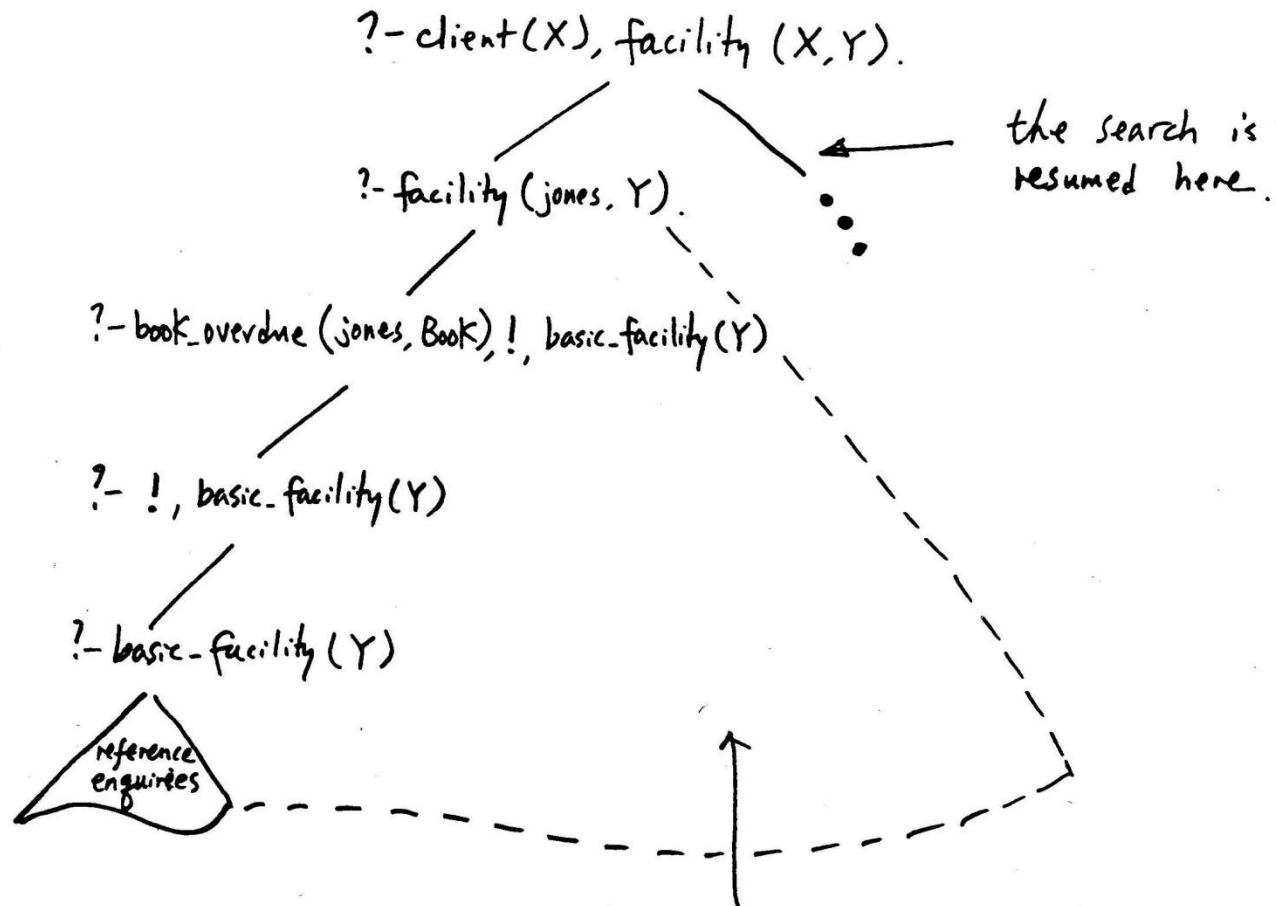 ?- client(X), facility (X,Y).
the search is
resumed here.
?- facility (jones, Y).
?- book_overdue (jones, Book), !, basic-facility(Y)
?- !, basic-facility(Y)
?- basic-facility (Y)
reference
enquiries